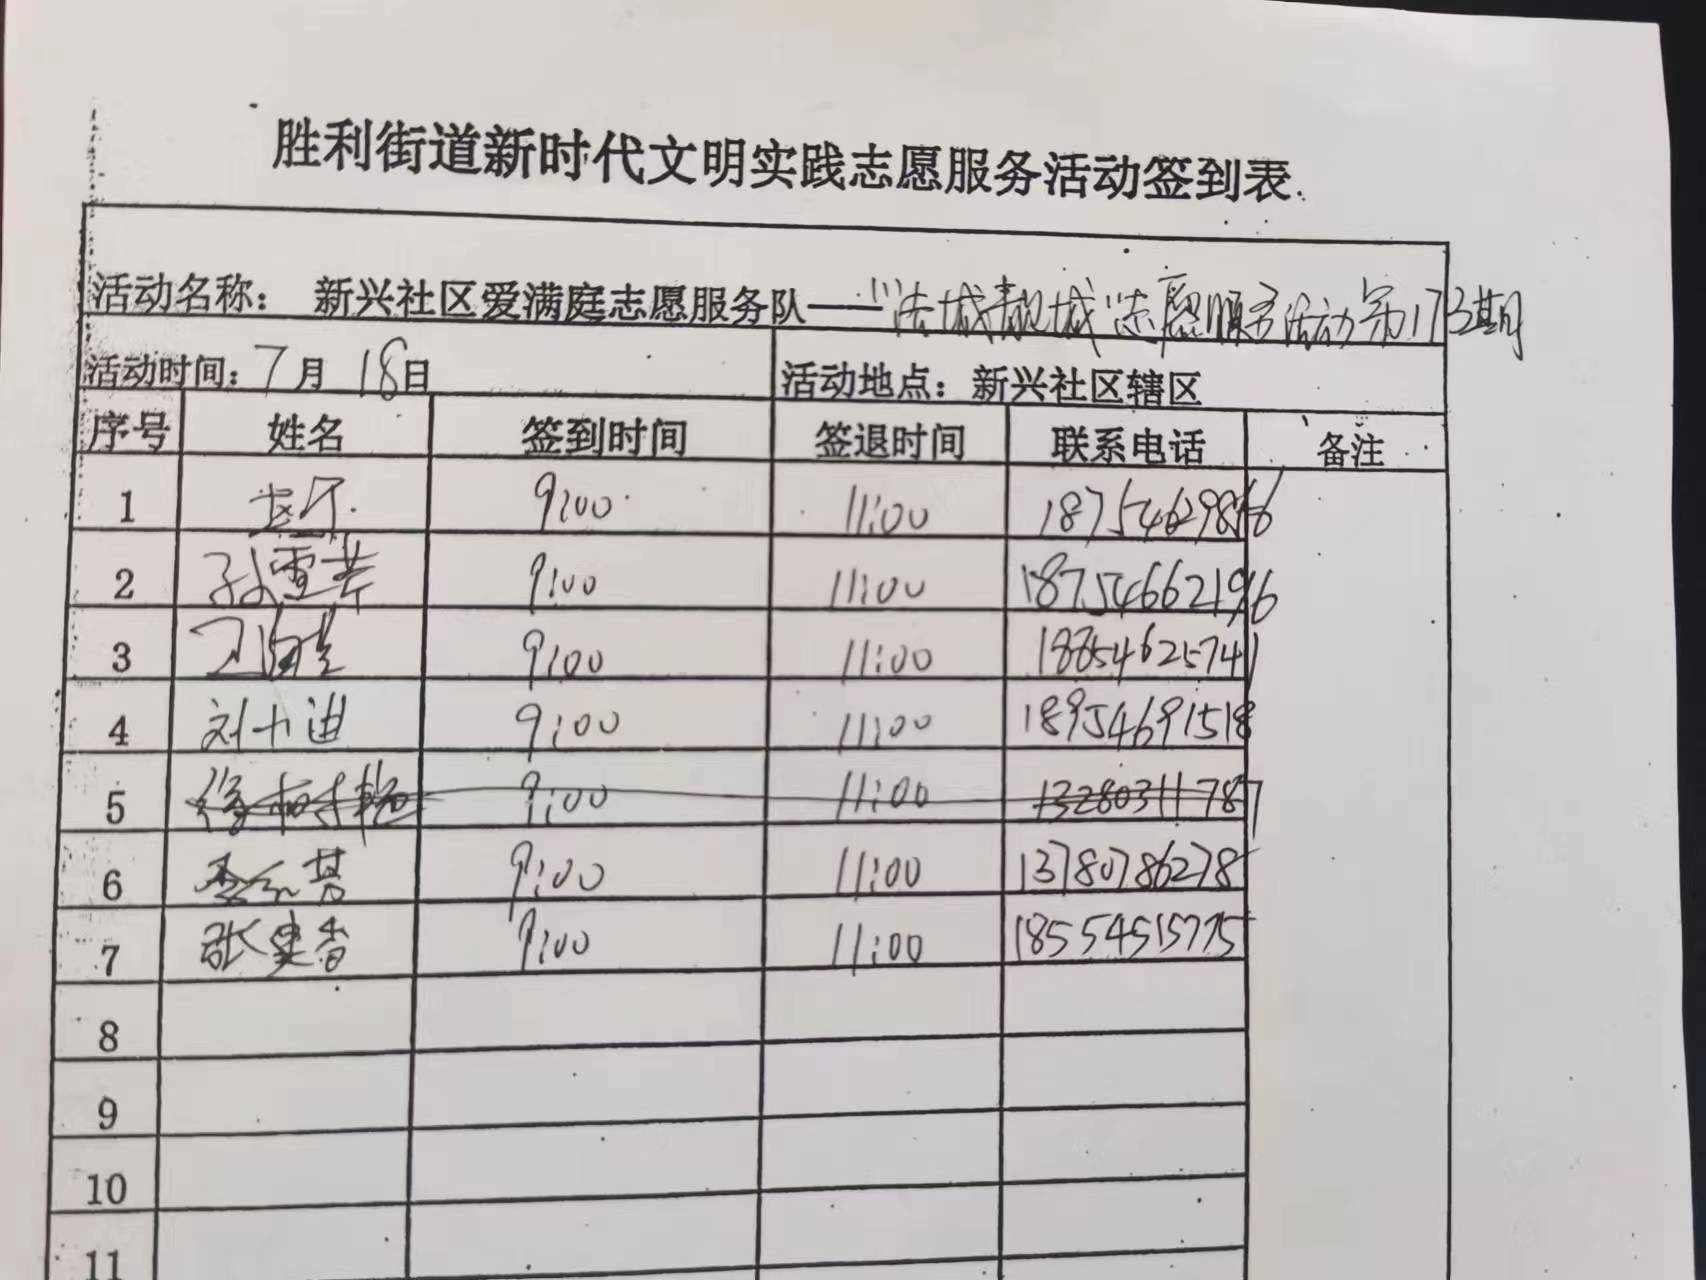 胜利街道新时代文明实践志愿服务活动签到表
活动名称： 新兴社区爱满庭志愿服务队——“洁城靓城”志愿服务活动第173期
活动时间：7月18日 活动地点：新兴社区辖区
序号 姓名 签到时间 签退时间 联系电话 备注
1 9:00 11:00
2 孙雪芹 9:00 11:00 18754662196
3 9:00 11:00 18854625741
4 刘小迪 9:00 11:00 18954691518
5 9:00 11:00 13280311787
6 9:00 11:00 13780786278
7 张建香 9:00 11:00 18554515775
8
9
10
11